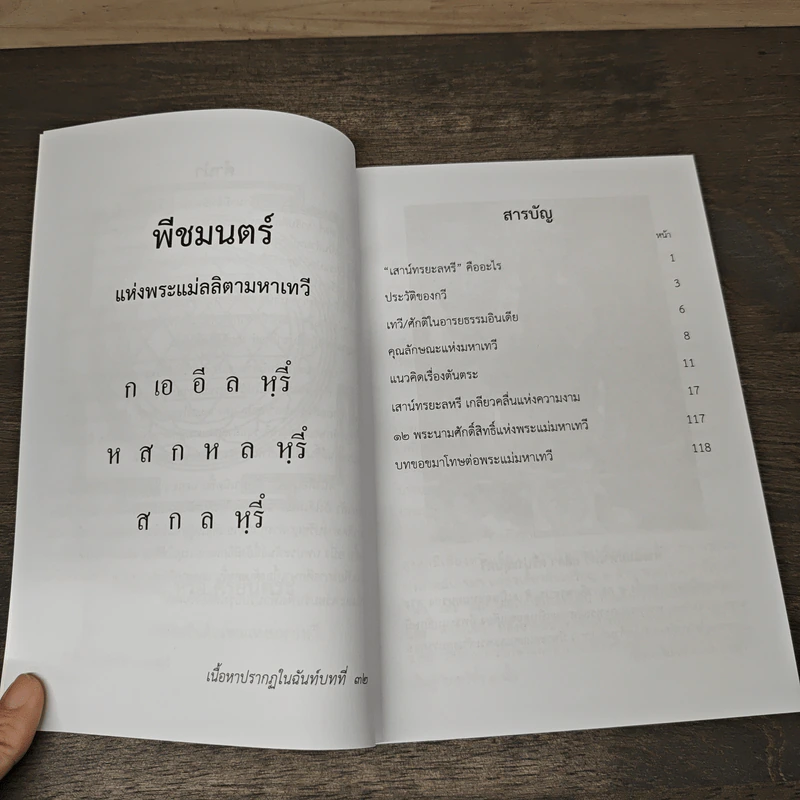 พีชมนตร์
แห่งพระแม่ลลิตามหาเทวี
ก เอ อี ล หฺรีํ
ห ส ก ห ล หฺรีํ
ส ก ล หฺรีํ
เนื้อหาปรากฏในฉันท์บทที่ ๓๒
สารบัญ
หน้า
“เสาน์ทรยะลหรี” คืออะไร 1
ประวัติของกวี 3
เทวี/ศักติในอารยธรรมอินเดีย 6
คุณลักษณะแห่งมหาเทวี 8
แนวคิดเรื่องตันตระ 11
เสาน์ทรยะลหรี เกลียวคลื่นแห่งความงาม 17
๑๒ พระนามศักดิ์สิทธิ์แห่งพระแม่มหาเทวี 117
บทขอขมาโทษต่อพระแม่มหาเทวี 118